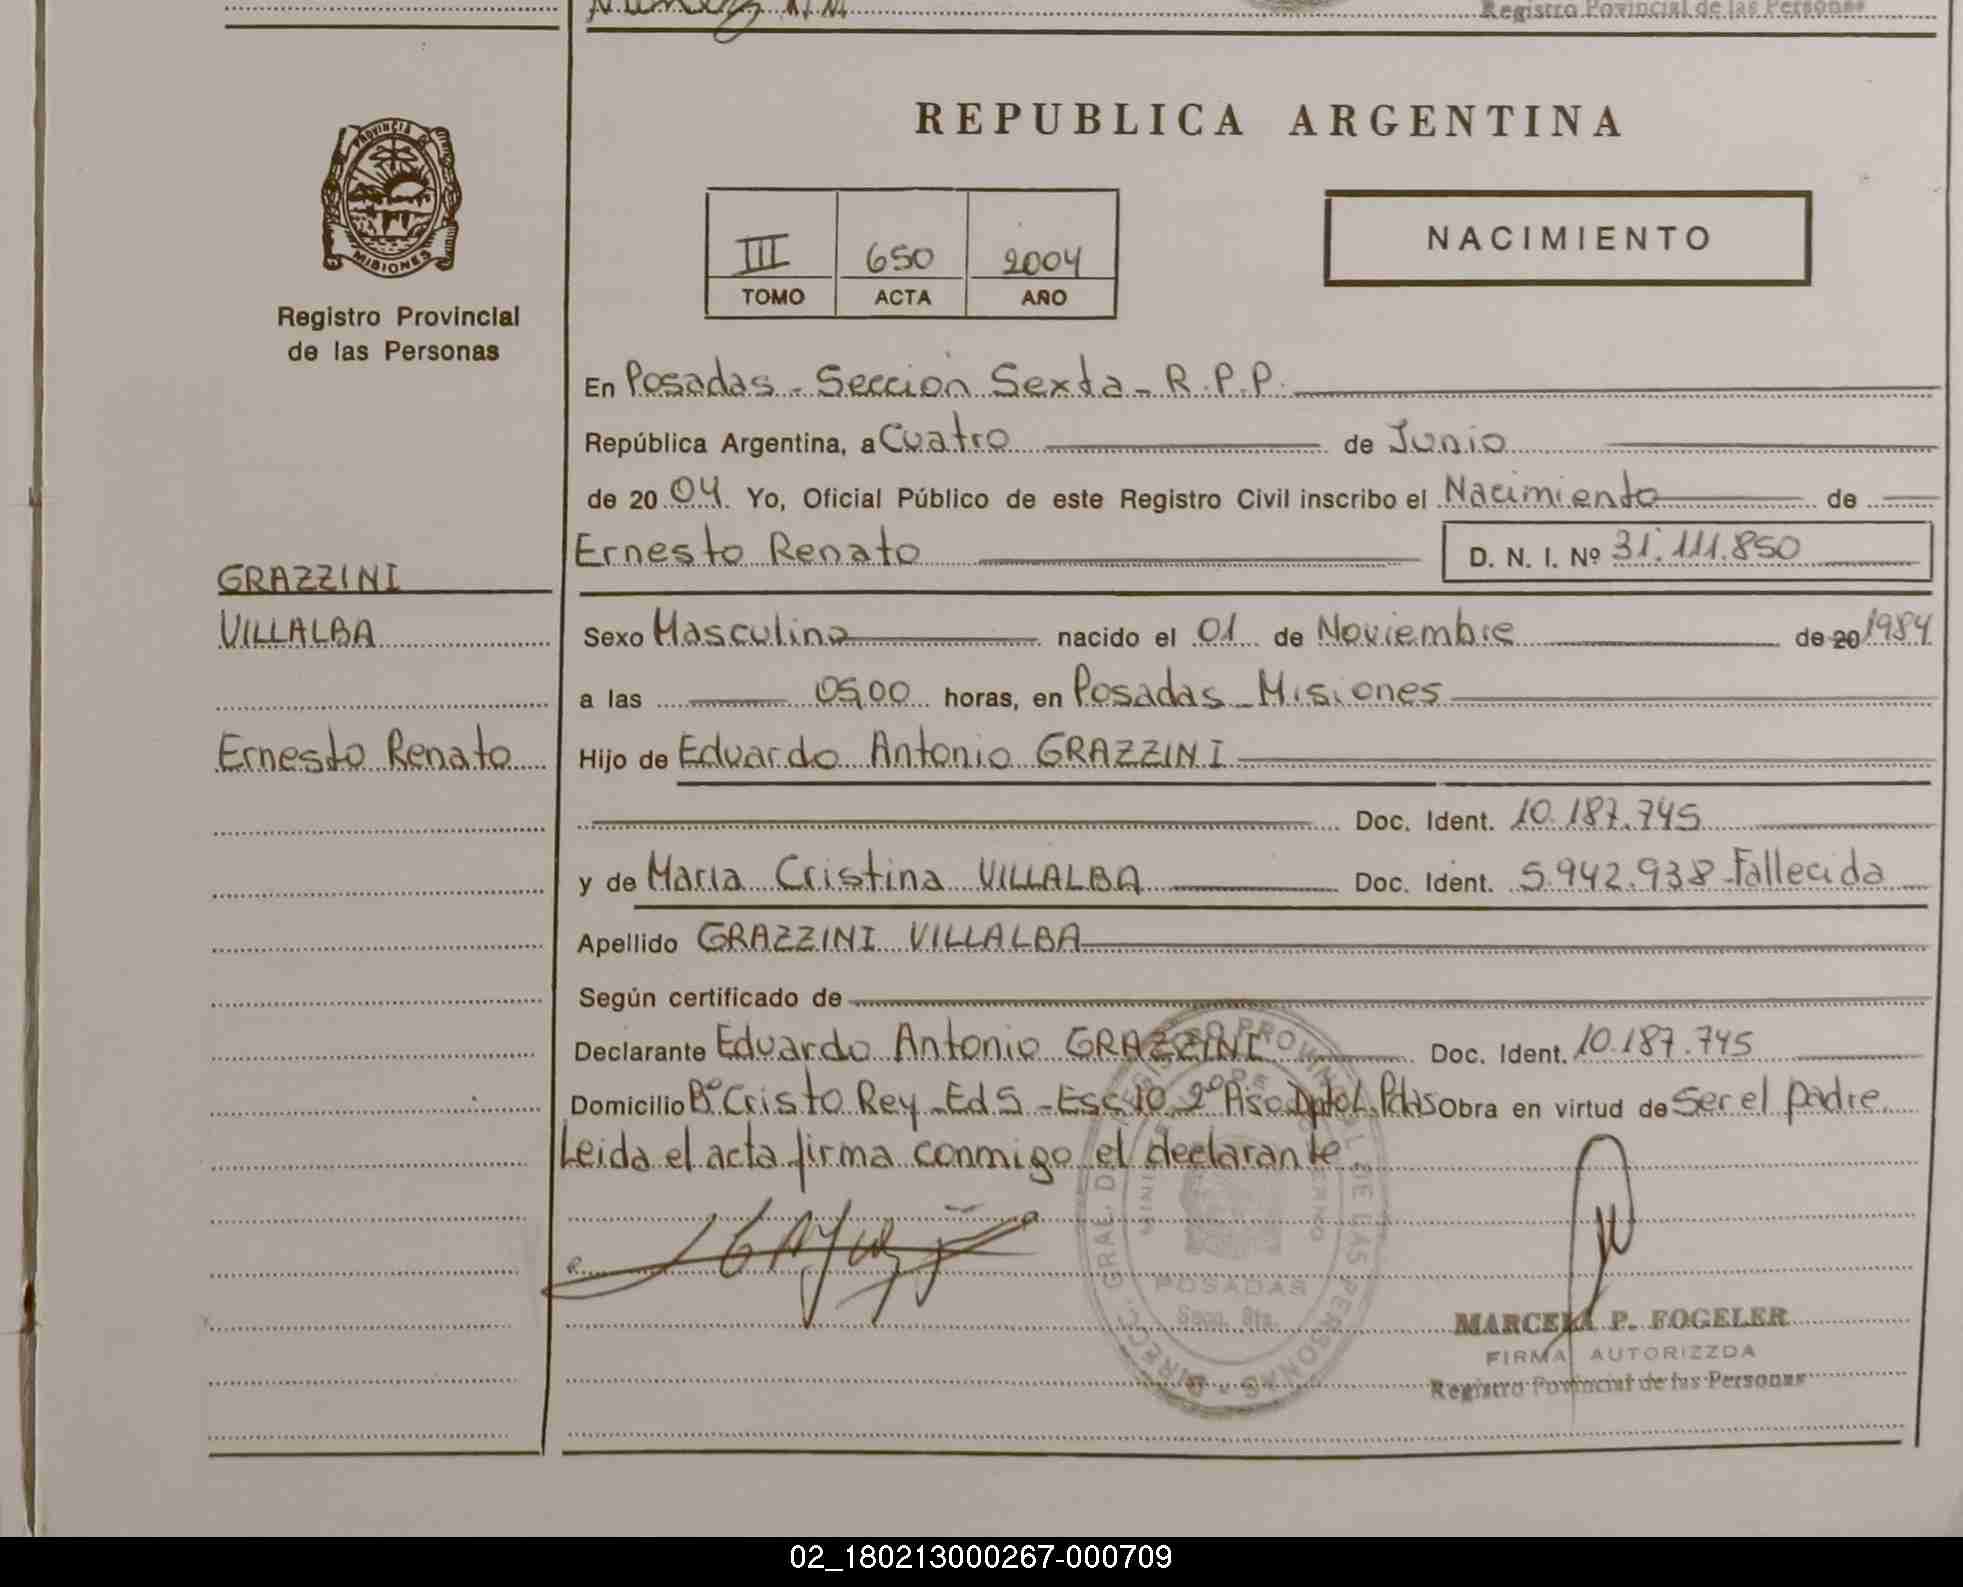 Registro Povincial de las Personas
PROVINCIA DE
MISIONES
Registro Provincial
de las Personas
REPUBLICA ARGENTINA
III 650 2004
TOMO ACTA AÑO
NACIMIENTO
En Posadas - Sección Sexta - R.P.P.
República Argentina, a Cuatro de Junio
de 20 04. Yo, Oficial Público de este Registro Civil inscribo el Nacimiento de
Ernesto Renato D. N. I. Nº 31.111.850
GRAZZINI
VILLALBA
Ernesto Renato
Sexo Masculino nacido el 01 de Noviembre de 20 1984
a las 05,00 horas, en Posadas - Misiones
Hijo de Eduardo Antonio GRAZZINI
Doc. Ident. 10.187.745
y de Maria Cristina VILLALBA Doc. Ident. 5.942.938 - Fallecida
Apellido GRAZZINI VILLALBA
Según certificado de
Declarante Eduardo Antonio GRAZZINI Doc. Ident. 10.187.745
Domicilio Bº Cristo Rey - Ed 5 - Esc 10 2º Piso Dpto L. Pdas Obra en virtud de Ser el padre
Leida el acta firma conmigo el declarante
DIRECC. GRAL. DE REGISTRO PROVINCIAL DE LAS PERSONAS
POSADAS
Secc. 6ta.
MARCELA P. FOGELER
FIRMA AUTORIZZDA
Registro Povincial de las Personas
02_180213000267-000709